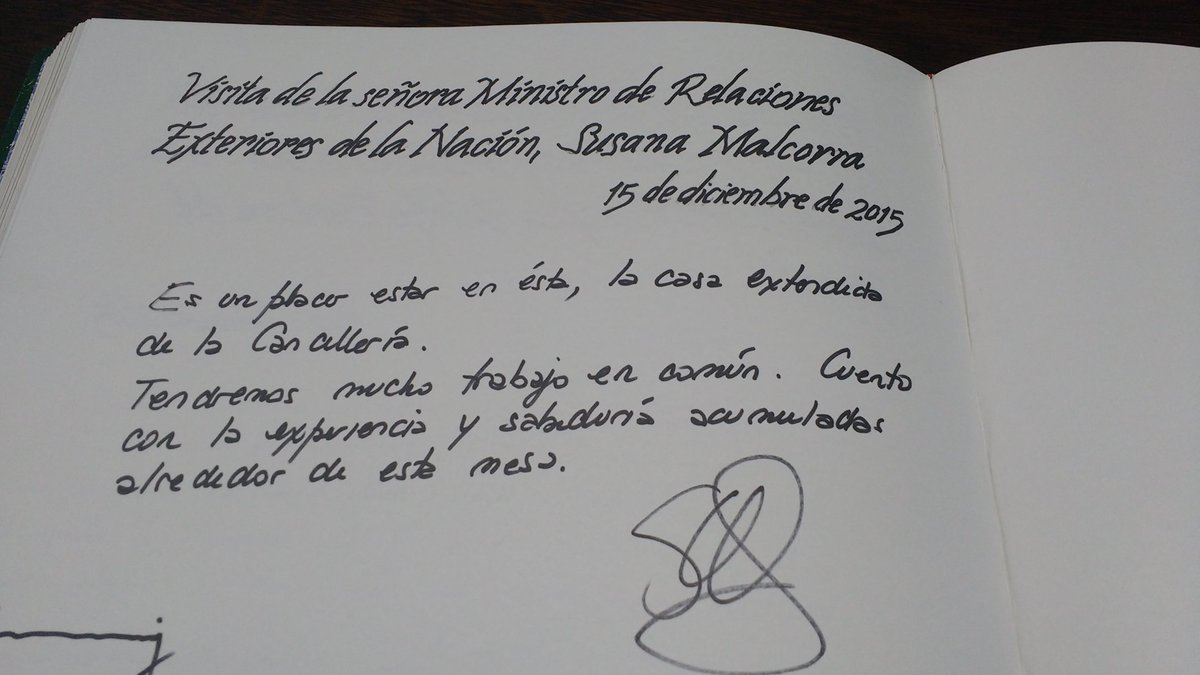 Visita de la señora Ministro de Relaciones
Exteriores de la Nación, Susana Malcorra
15 de diciembre de 2015
Es un placer estar en ésta, la casa extendida
de la Cancillería.
Tendremos mucho trabajo en común. Cuento
con la experiencia y sabiduría acumuladas
alrededor de esta mesa.